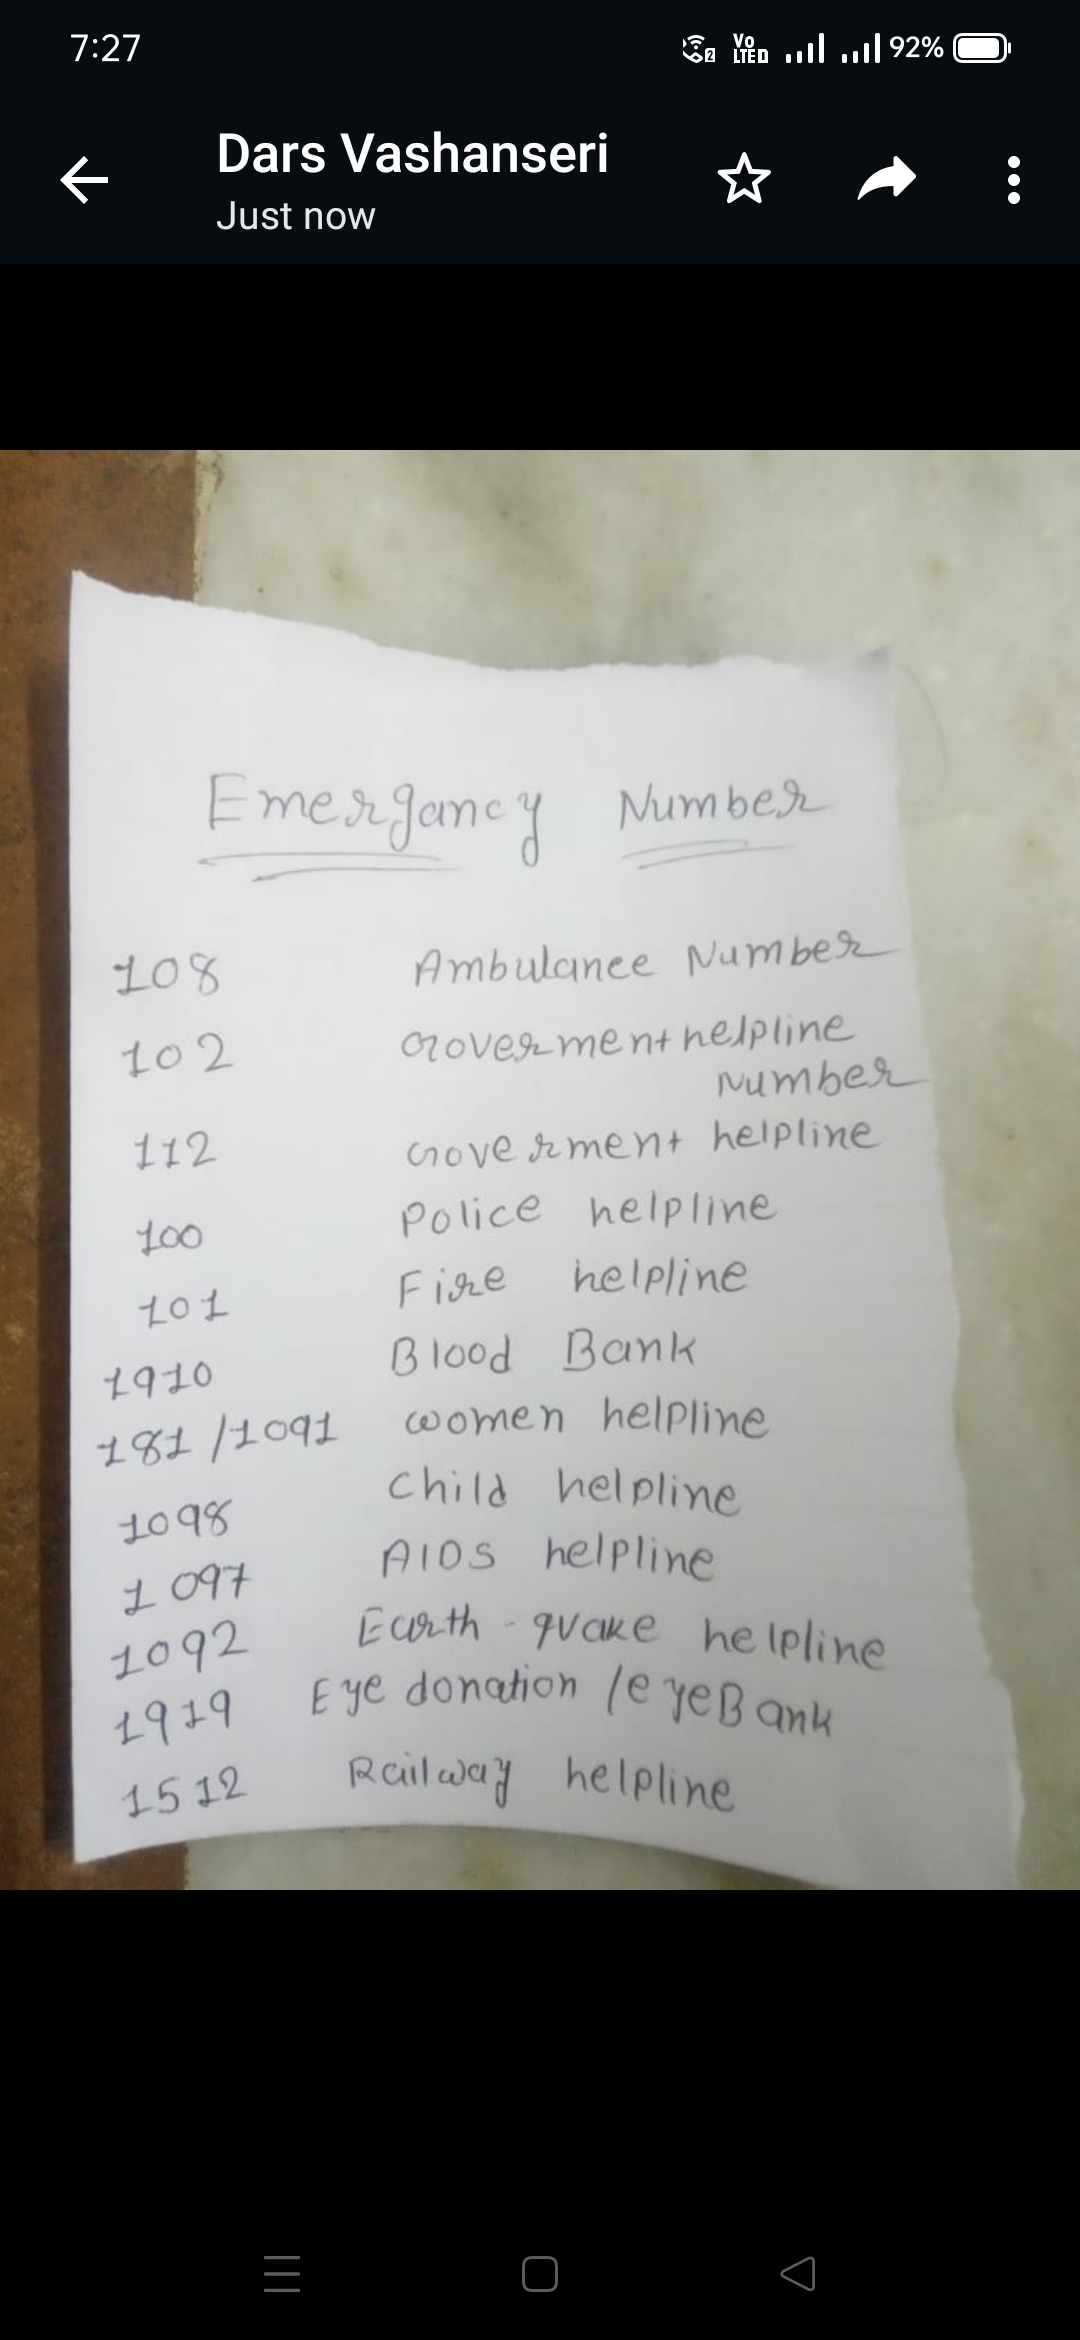 7:27
Vo
LTE D
2
92%
Dars Vashanseri
Just now
Emergancy Number
108 Ambulance Number
102 Goverment helpline
Number
112 Goverment helpline
100 Police helpline
101 Fire helpline
1910 Blood Bank
181/1091 women helpline
1098 Child helpline
1097 AIDS helpline
1092 Earth-quake helpline
1919 Eye donation/eyeBank
1512 Railway helpline